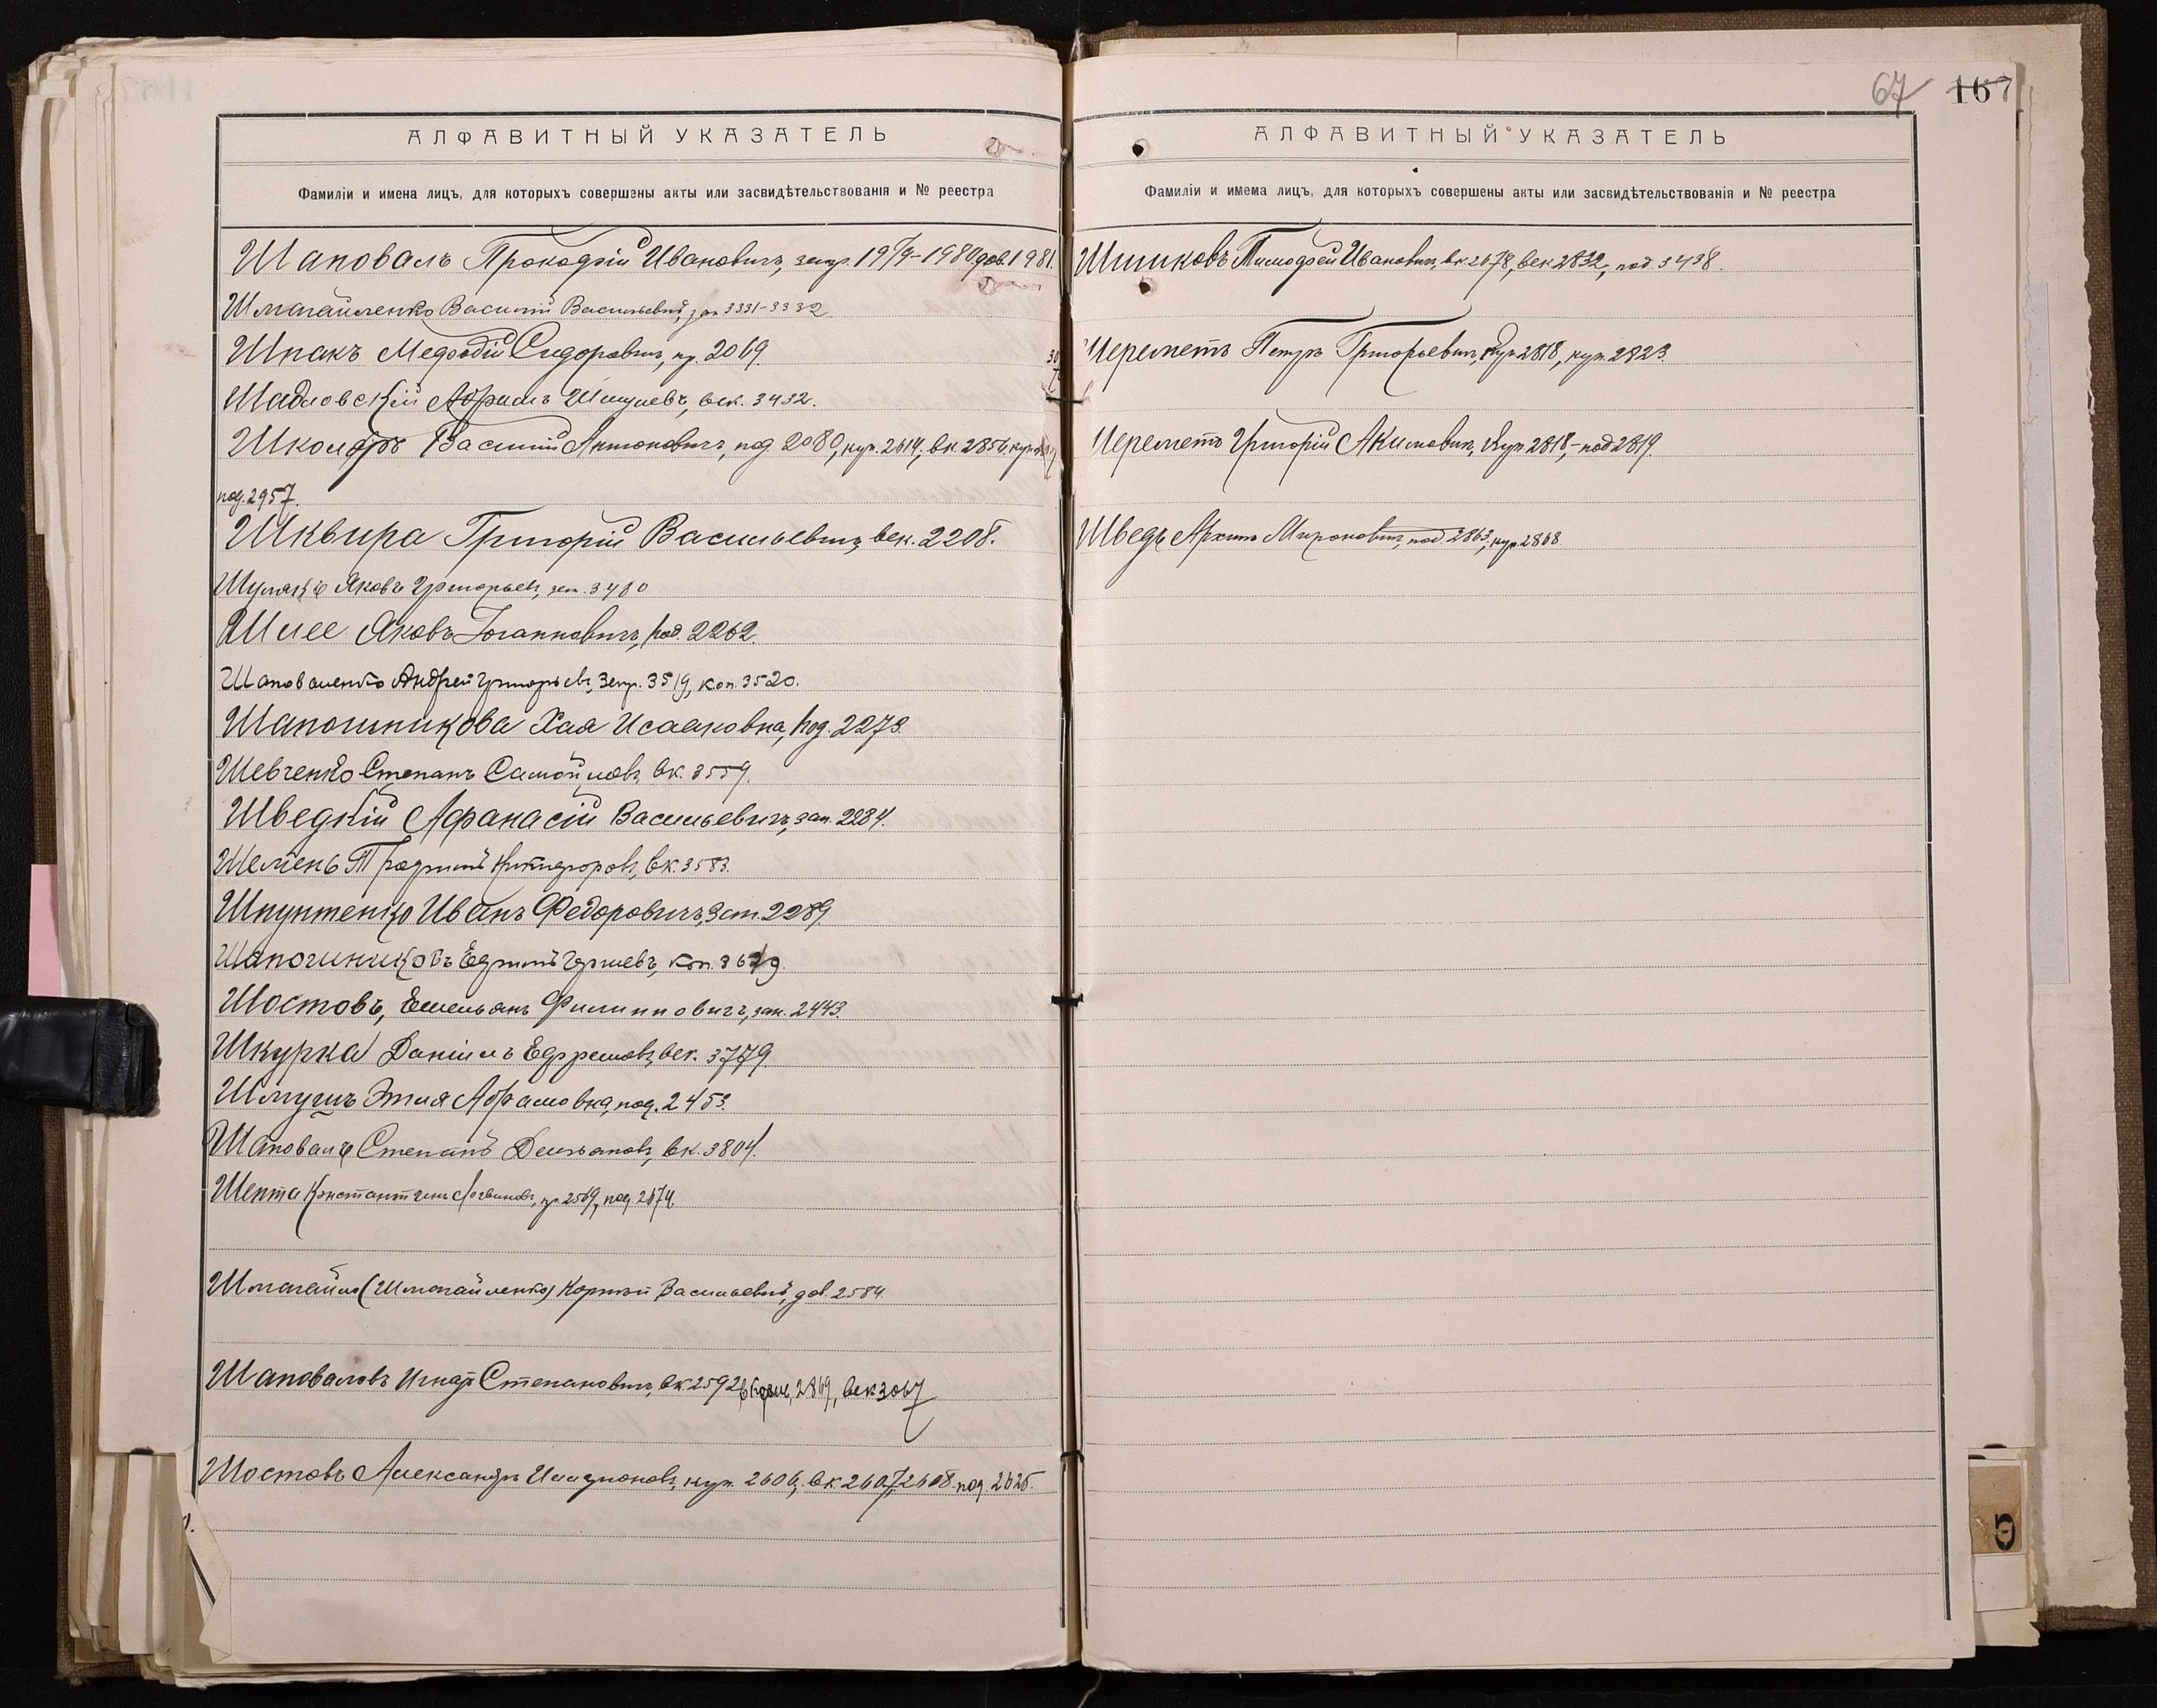 АЛФАВИТНЫЙ УКАЗАТЕЛЬ
Фамиліи и имена лицъ, для которыхъ совершены акты или засвидѣтельствованія и № реестра
Шаповалъ Прокофій Ивановичъ, 1979-1980, дов. 1981.
Шмагайленко Василій Васильевичъ, 3331-3332
Шпакъ Мефодій Сидоровичъ, пр. 2069.
Шадловскій Абрамъ век. 3432.
Василий Антоновичъ, под. 2080, куп. 2614, вк. 2856,
под. 2957.
Шквира Григорій Васильевичъ, век. 2208.
Шулякъ Яковъ Григорьев, 3480
Шлее Яковъ Іоганновичъ, под. 2262.
Шаповаленко Андрей Григорьев, 3519, коп. 3520.
Шапошникова Хая Исааковна, под. 2273.
Шевченко Степанъ Самойлов, вк. 3559.
Шведкій Афанасій Васильевичъ, зап. 2284.
Шемень Трофимъ Никифоров, вк. 3583.
Шпунтенко Иванъ Федоровичъ, 2289.
Шапошниковъ Ефримъ коп.
Шостовъ, Емельянъ Филипповичъ, зап. 2443.
Шкурка Даніилъ Ефремов, век. 3779.
Этля Абрамовна, под. 2453.
Шаповалъ Степанъ Демьянов, вк. 3804.
Шепта Константинъ Логвинов, пр. 2569, под. 2674.
Шмагайло (Шмагайленко) Корнѣй Васильевичъ, дов. 2584.
Шаповаловъ Игнатъ Степановичъ, вк. 2592, 2869, век 3067
Шостовъ Александръ куп. 2606, вк. 2607, 2608. под. 2625.
67 167
АЛФАВИТНЫЙ УКАЗАТЕЛЬ
Фамиліи и имема лицъ, для которыхъ совершены акты или засвидѣтельствованія и № реестра
Шишковъ Тимофей Ивановичъ, вк. 2678, век 2832, под. 3438.
Шереметъ Петръ Григорьевичъ, куп 2818, куп. 2823.
Шереметъ Григорій Акимович, куп 2818, - под 2819.
Шведъ Архипъ Мироновичъ, под. 2863, куп. 2868
5